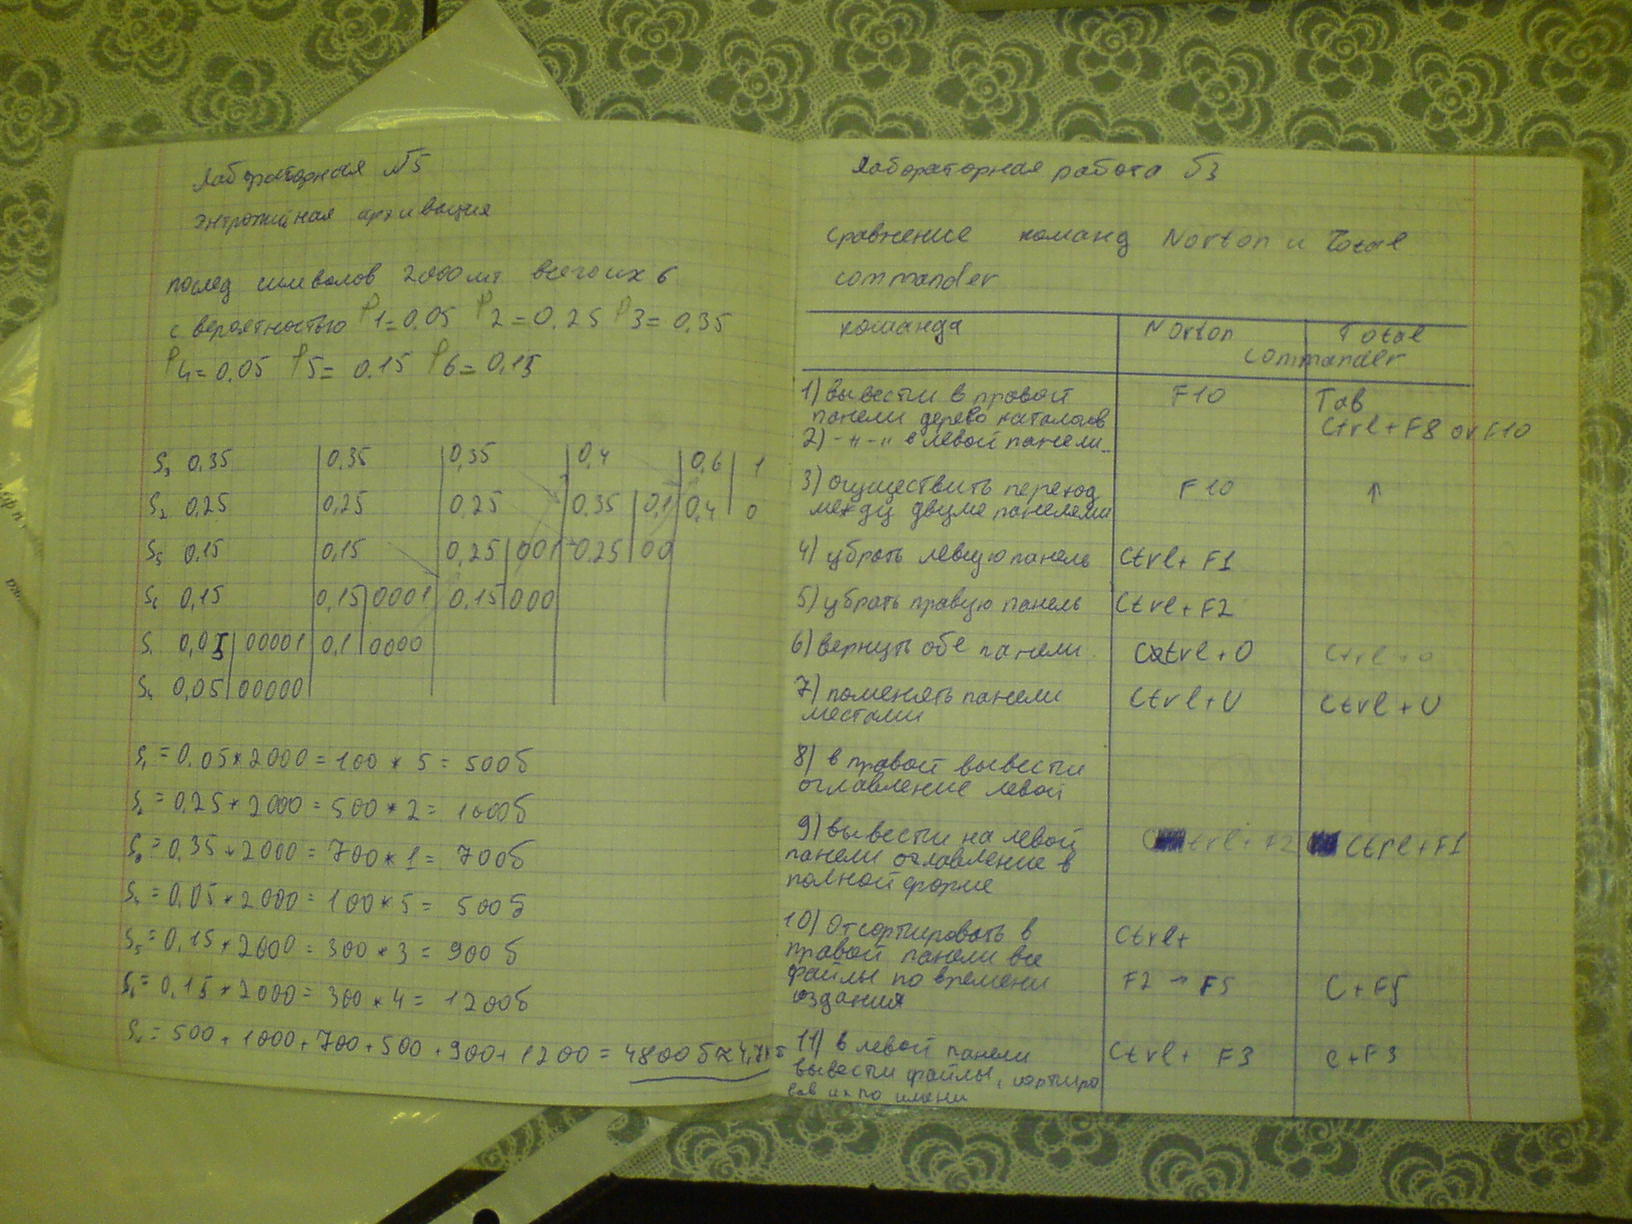 Лабораторная №5
энтропийная архивация
послед символов 2000 шт всего их 6
с вероятностью P1=0.05 P2=0.25 P3=0.35
P4=0.05 P5=0.15 P6=0.15
S3 0,35 0,35 0,35 0,4 0,6 1
S2 0,25 0,25 0,25 0,35 0,1 0,4 0
S5 0,15 0,15 0,25 001 0.25 00
S6 0,15 0,15 0001 0,15 000
S1 0,05 00001 0,1 0000
S4 0,05 00000
S1 = 0.05*2000 = 100 * 5 = 500б
S2 = 0,25*2000 = 500 * 2 = 1000б
S3 = 0,35*2000 = 700*1 = 700б
S4 = 0,05*2000 = 100*5 = 500б
S5 = 0,15*2000 = 300*3 = 900б
S6 = 0,15*2000 = 300*4 = 1200б
= 500+1000+700+500+900+1200 = 4800б≈4,7
Лабораторная работа №3
сравнение команд Norton и Total
commander
команда Norton Total
commander
1) вывести в правой F10 Tab
панели дерево каталогов Ctrl+F8 or F10
2) -"-" в левой панели
3) осуществить переход F10 ↑
между двумя панелями
4) убрать левую панель Ctrl+F1
5) убрать правую панель Ctrl+F2
6) вернуть обе панели Ctrl+O Ctrl+o
7) поменять панели Ctrl+U Ctrl+U
местами
8) в правой вывести
оглавление левой
9) вывести на левой Ctrl+F2 Ctrl+F1
панели оглавление в
полной форме
10) Отсортировать в Ctrl+
правой панели все
файлы по времени F2 → F5 C+F5
создания
11) в левой панели Ctrl+F3 C+F3
вывести файлы, сортиро
вав их по имени